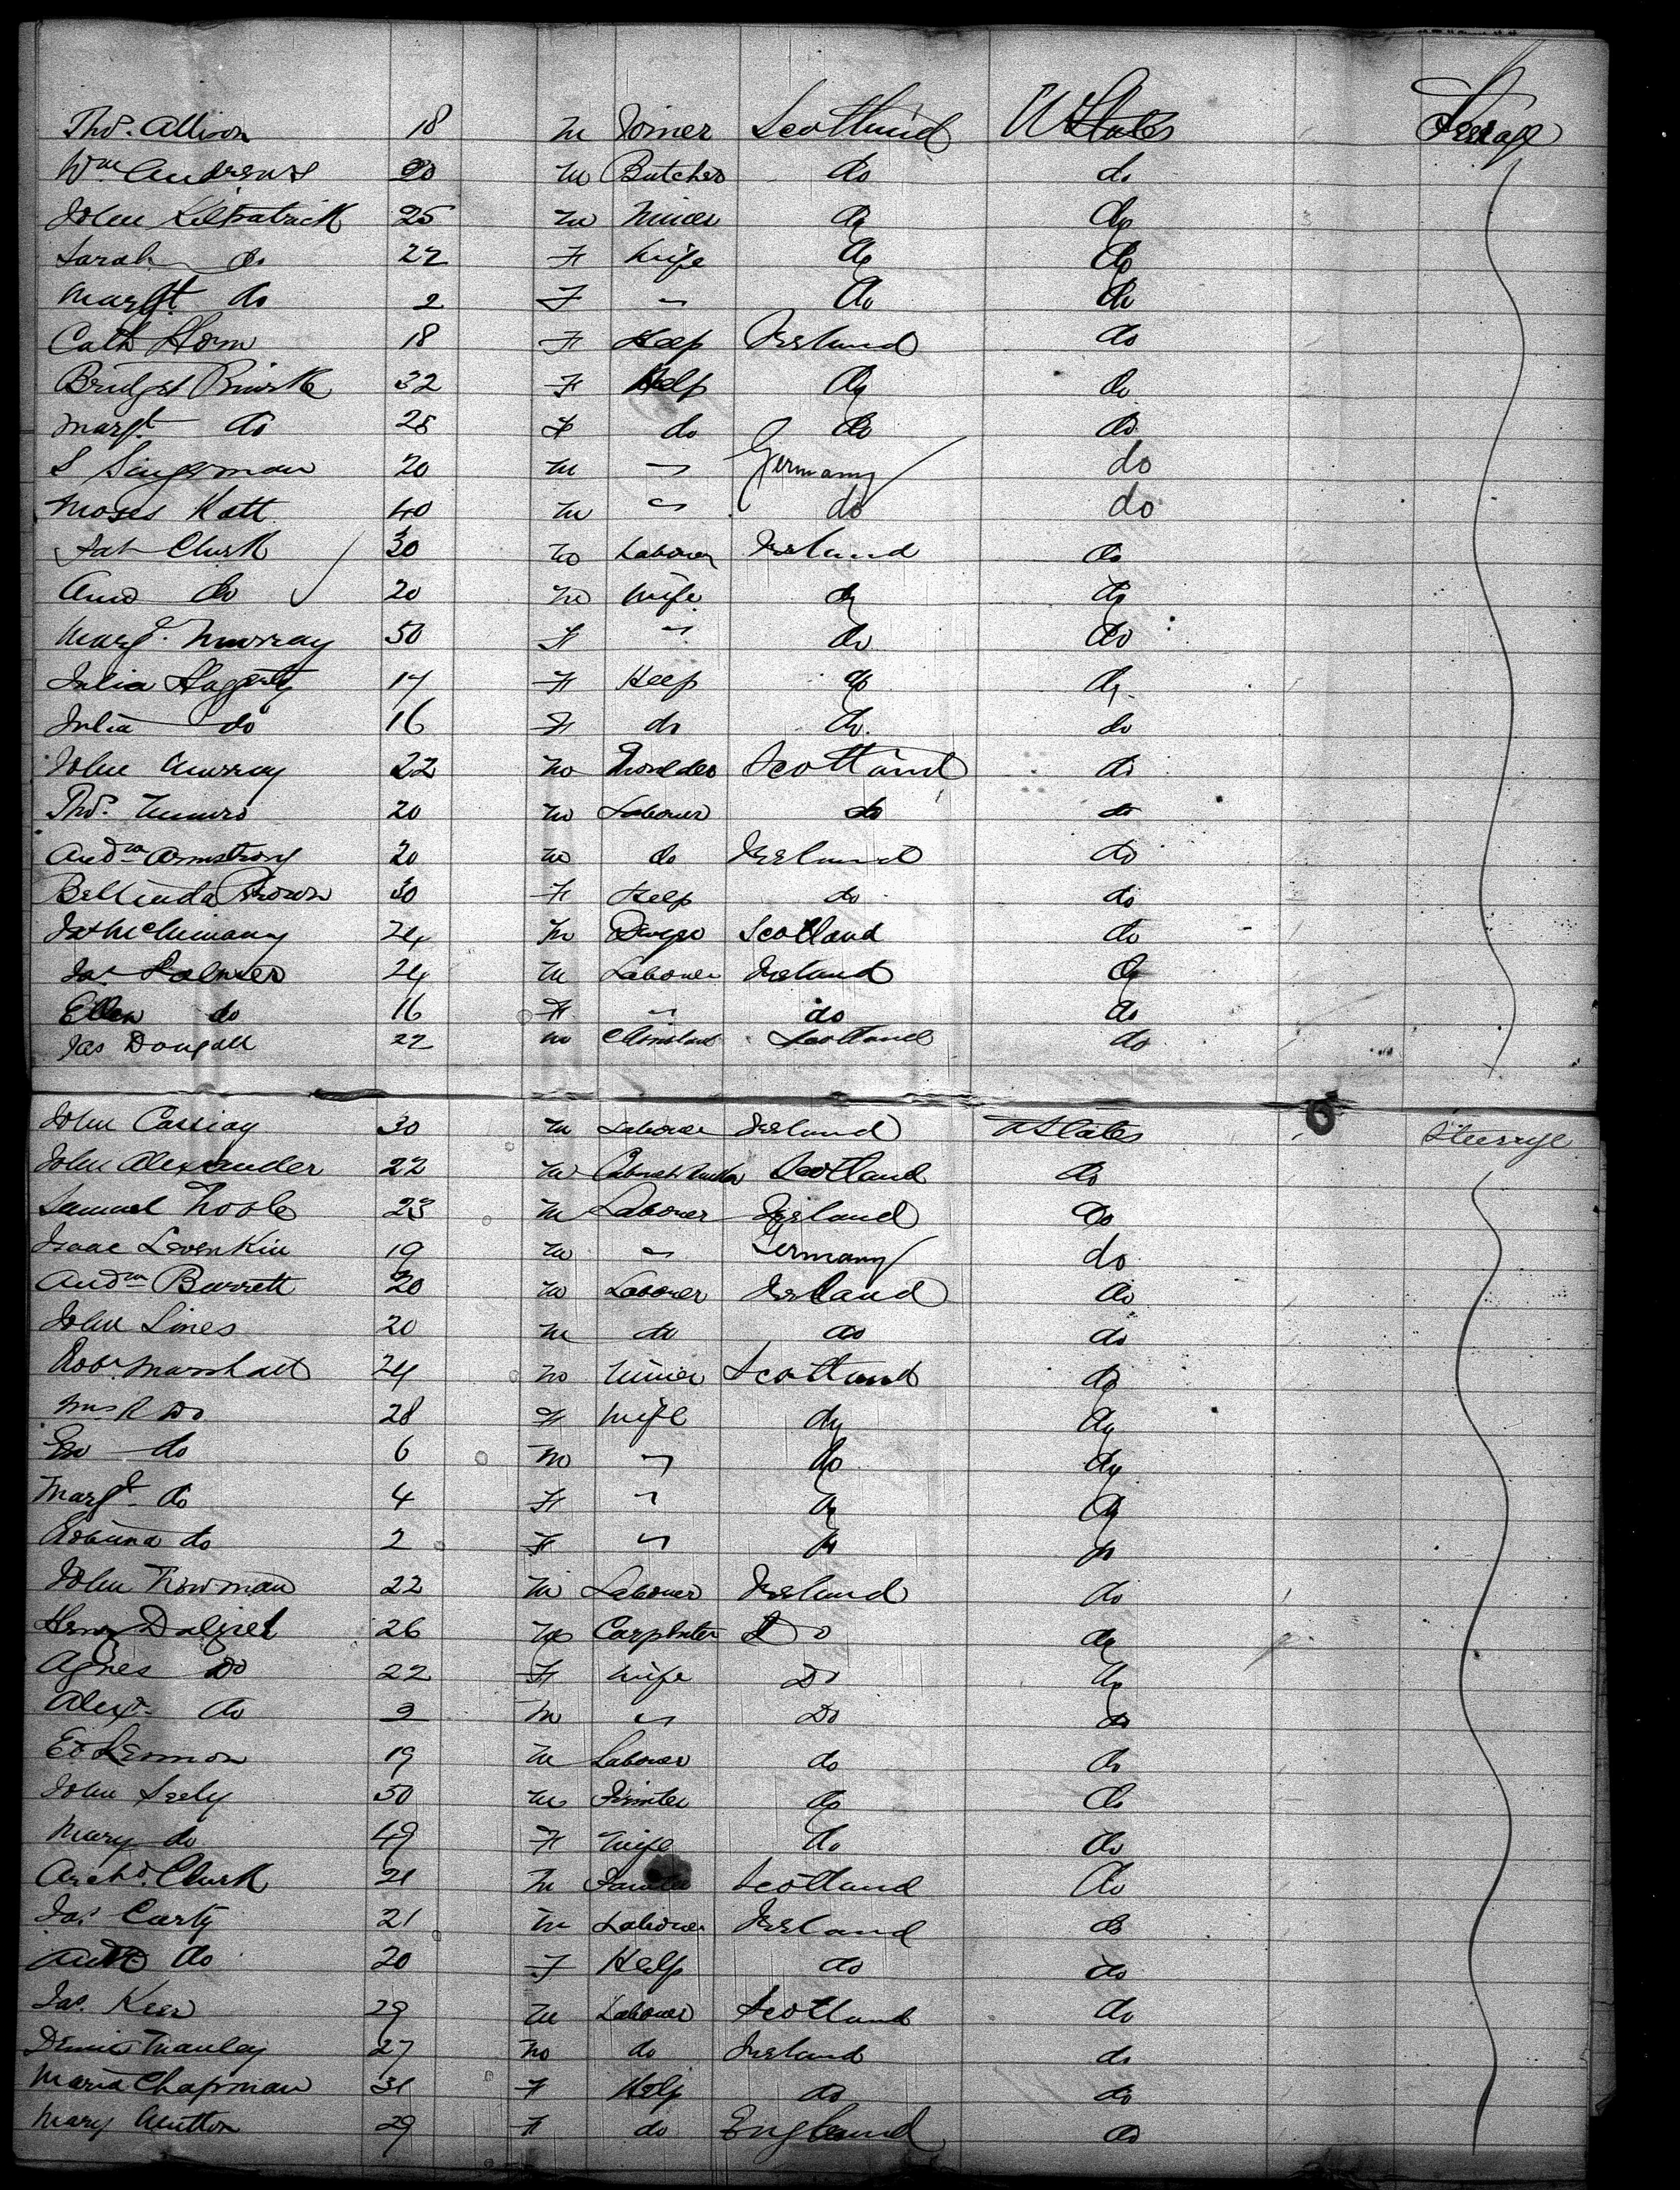 Thos. Allison 18 M Joiner Scotland U States Steerage
Wm Andrews 20 M Butcher do do
John Kilpatrick 25 M Miner do do
Sarah do 22 F Wife do do
Margt. do 2 F " do do
Cath Horn 18 F Help Ireland do
Bridget 32 F Help do do
Margt do 28 F do do do
S Singerman 20 M " Germany do
Moses Katt 40 M " do do
Pat Clark 30 M Laborer Ireland do
Ann do 20 M Wife do do
Margt. Murray 50 F " do do
Julia Haggerty 17 F Help do do
Julia do 16 F do do do
John Murray 22 M Moulder Scotland do
Thos. Munro 20 M Laborer do do
Andw Armstrong 20 M do Ireland do
Bellinda Brown 30 F Help do do
Jas 24 M Scotland do
Jas Palmer 24 M Laborer Ireland do
Ellen do 16 F " do do
Jas Dougall 22 M Scotland do
John Cassiay 30 M Laborer Ireland U States Steerage
John Alexander 22 M Cabinet Maker Scotland do
Samuel 23 M Laborer Ireland do
Isaac Levenkin 19 M " Germany do
Andw Barrett 20 M Laborer Ireland do
John Lines 20 M do do do
Robt. Marshall 24 M Miner Scotland do
Mrs R Do 28 F Wife do do
Geo do 6 M " do do
Margt do 4 F " do do
Robina do 2 F " do do
John 22 M Laborer Ireland do
Henry Dalziel 26 M Carpenter Do do
Agnes Do 22 F Wife Do do
Alexr do 2 M " Do do
Ed Lennon 19 M Laborer do do
John Seely 50 M do do
Mary do 49 F Wife do do
Archd. Clark 21 M Scotland do
Jas. Carty 21 M Laborer Ireland do
Ann do 20 F Help do do
Jas. Kerr 29 M Laborer Scotland do
Dennis Manley 27 M do Ireland do
Maria Chapman 31 F Help do do
Mary Mutton 29 F do England do